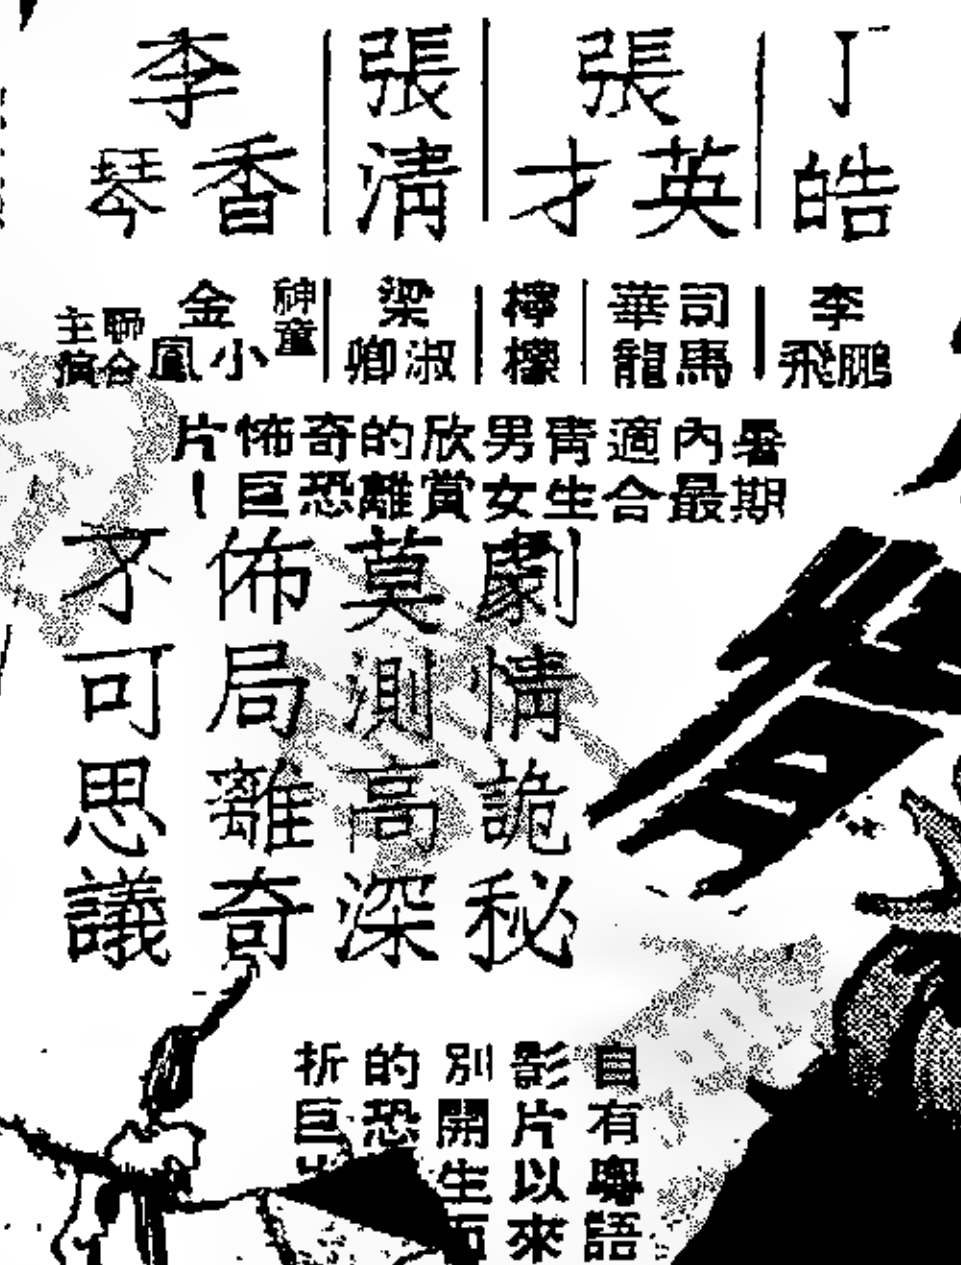 丁皓
張英才
張清
李香琴
李鵬飛
司馬華龍
檸檬
梁淑卿
神童金小鳳
聯合主演
暑期內最適合青生男女欣賞的離奇恐怖巨片！
劇情詭秘
莫測高深
佈局離奇
不可思議
自有粵語
影片以來
別開生面
的恐
折巨